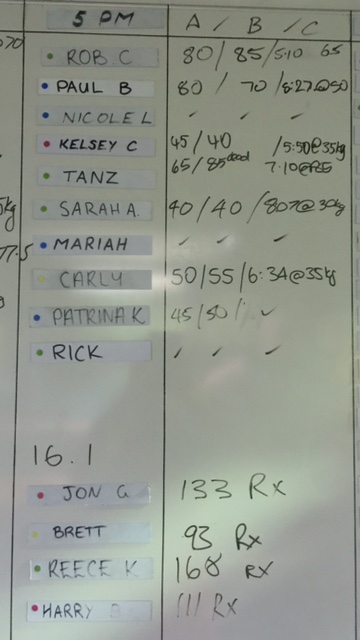 5 PM A / B / C
ROB C 80 / 85 / 5:10 65
PAUL B 80 / 70 / 8:27@50
NICOLE L ✓ ✓ ✓
KELSEY C 45 / 40 / 5:50@35kg
TANZ 65 / 85 dead
SARAH A. 40 / 40 / 807@30kg
MARIAH ✓ ✓ ✓
CARLY 50 / 55 / 6:34@35kg
PATRINA K 45 / 50 / ✓
RICK ✓ ✓ ✓
16.1
JON G 133 Rx
BRETT 93 Rx
REECE K 168 RX
HARRY B 111 Rx
77.5